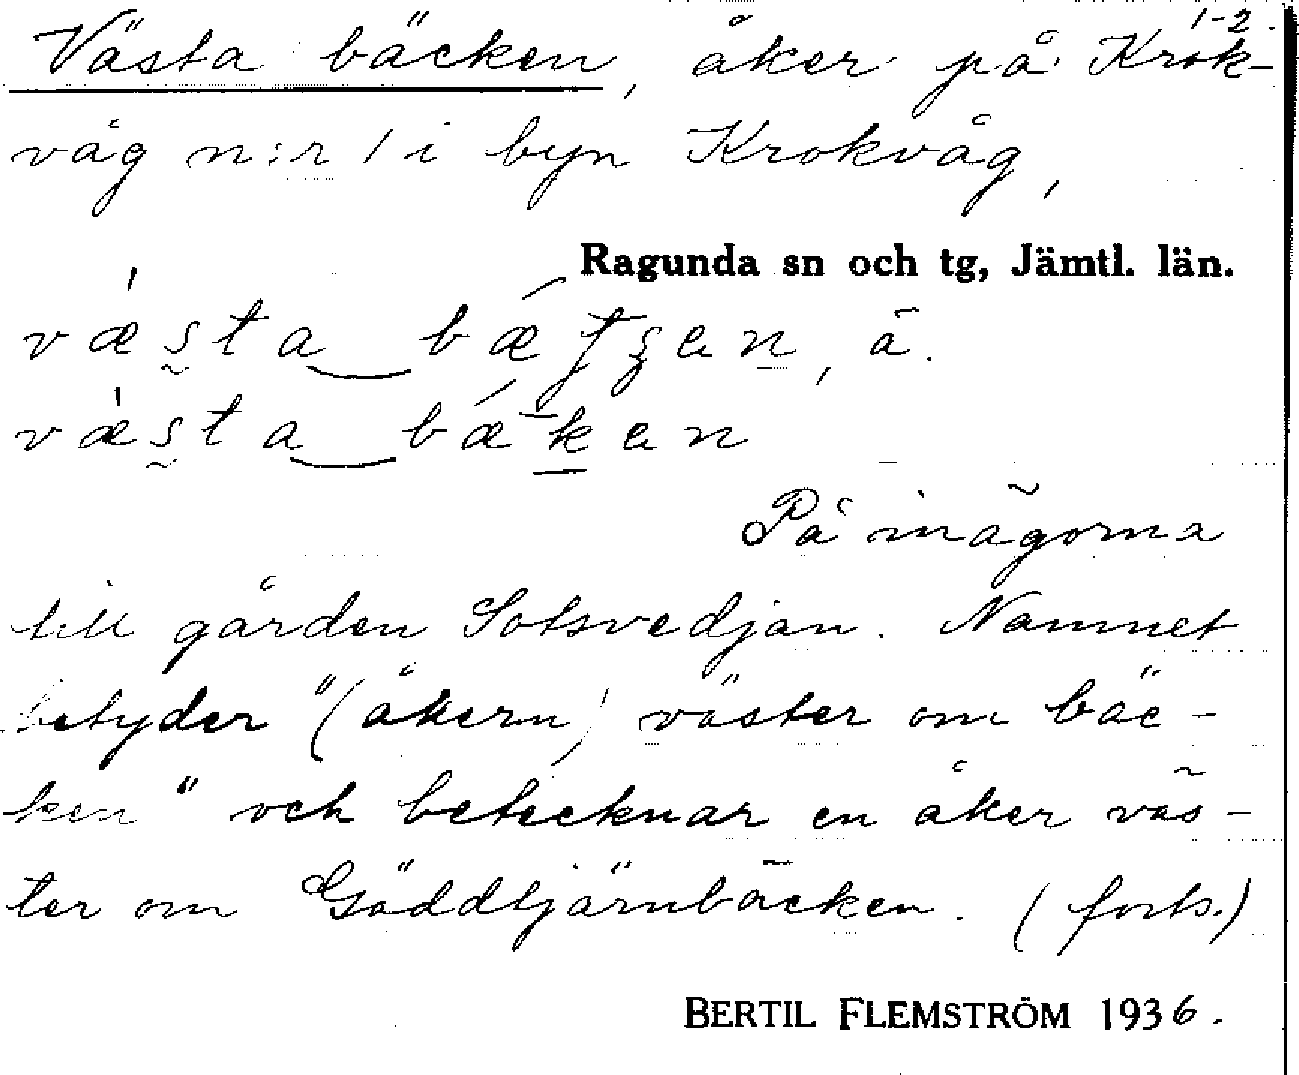 1-2.
Västa bäcken, åker på Krok-
våg n:r 1 i byn Krokvåg,
Ragunda sn och tg, Jämtl. län.
væ̀sta bæ, å.
væ̀sta bǽken
På inägorna
till gården Sotsvedjan. Namnet
betyder "(åkern) väster om bäc-
ken" och betecknar en åker väs-
ter om Gäddtjärnbäcken. (forts.)
BERTIL FLEMSTRÖM 1936.